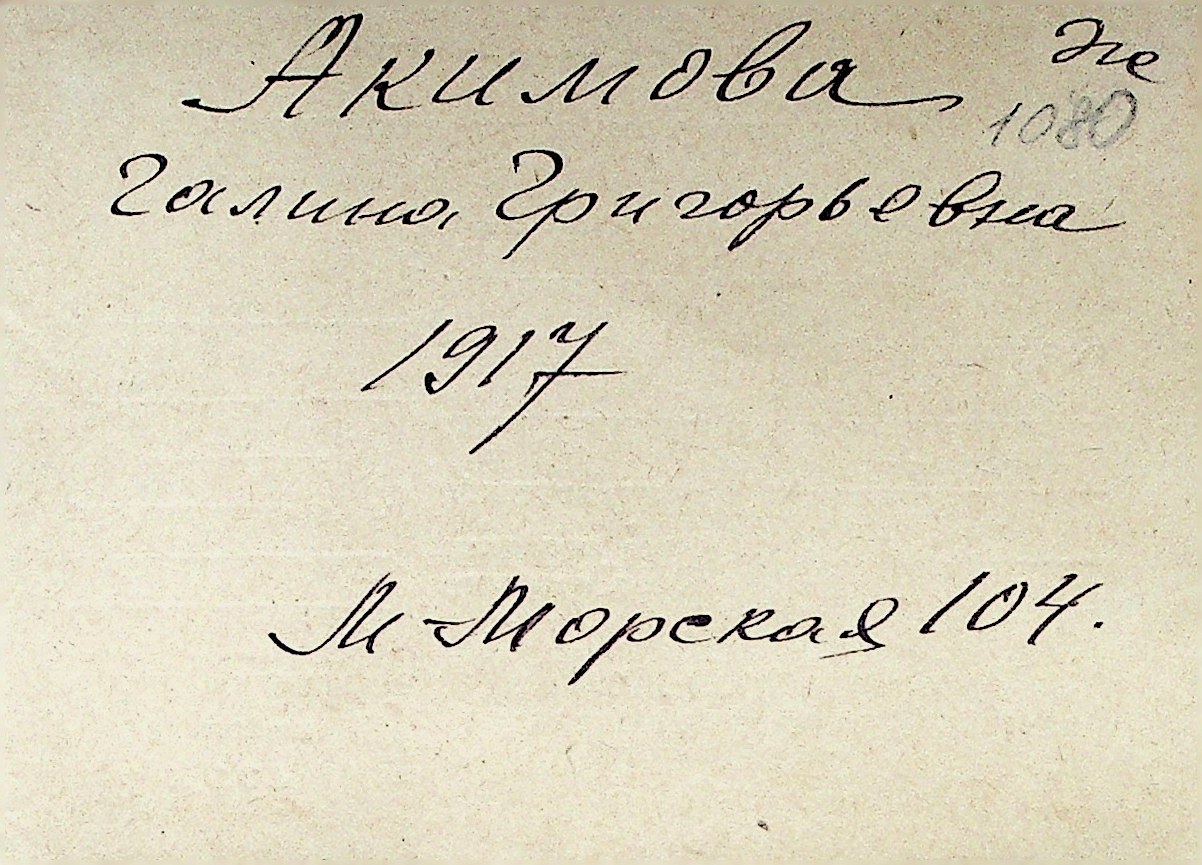 Акимова
1080
Галина Григорьевна
1917
М-Морская 104.